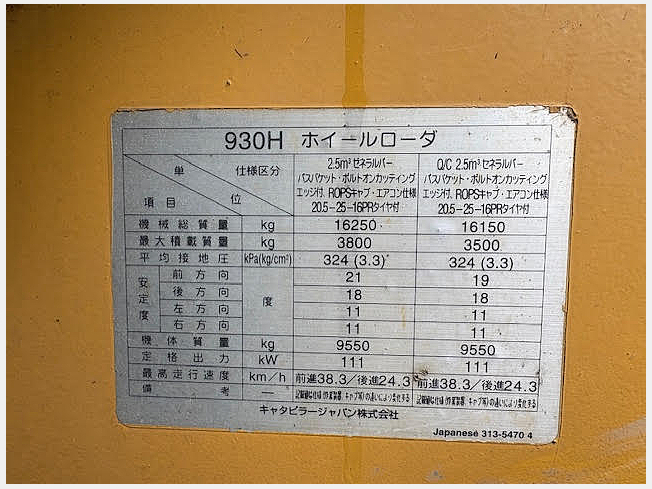 930H ホイールローダ
単位 仕様区分 項目
2.5m³ ゼネラルパー
パスバケット・ボルトオンカッティング
エッジ付、ROPSキャブ・エアコン仕様
20.5-25-16PRタイヤ付
Q/C 2.5m³ ゼネラルパー
パスバケット・ボルトオンカッティング
エッジ付、ROPSキャブ・エアコン仕様
20.5-25-16PRタイヤ付
機械総質量 kg 16250 16150
最大積載質量 kg 3800 3500
平均接地圧 kPa(kg/cm²) 324 (3.3) 324 (3.3)
安定度 前方向 度 21 19
後方向 18 18
左方向 11 11
右方向 11 11
機体質量 kg 9550 9550
定格出力 kW 111 111
最高走行速度 km/h 前進38.3/後進24.3 前進38.3/後進24.3
備考 —
キャタピラージャパン株式会社
Japanese 313-5470 4